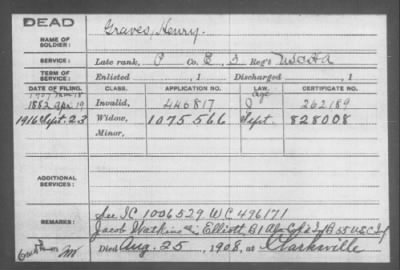 DEAD
NAME OF SOLDIER: Graves, Henry.
SERVICE: Late rank, P Co. E, 3 Reg't USCHA
TERM OF SERVICE: Enlisted , 1 Discharged , 1
DATE OF FILING. CLASS. APPLICATION NO. LAW. CERTIFICATE NO.
1907
age
1882 Apr. 19 Invalid, 446817 J 262189
1916 Sept. 23 Widow, 1075566 Sept. 828008
Minor,
ADDITIONAL SERVICES:
REMARKS: See IC 1006529 WC 496171
Jacob Watkins Elliott, B 1 55 USC Inf
Died Aug. 25, 1908, at Clarksville